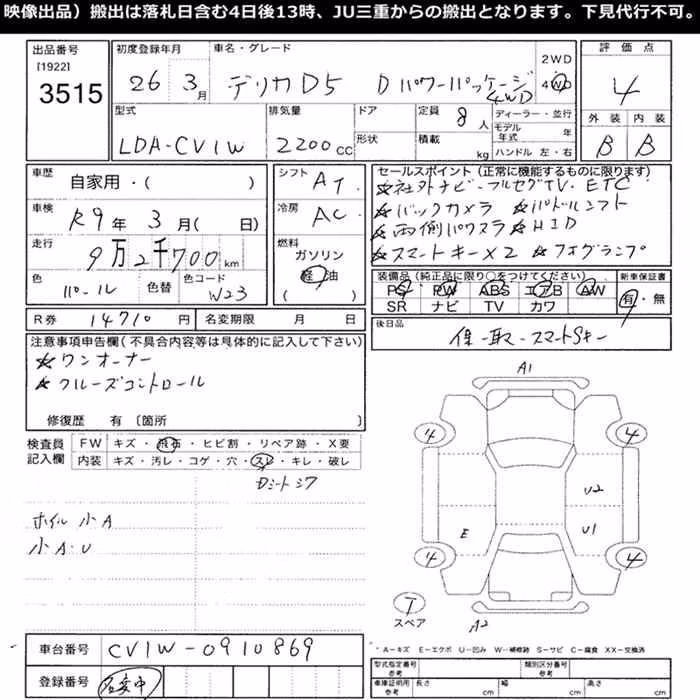 映像出品）搬出は落札日含む4日後13時、JU三重からの搬出となります。下見代行不可。
出品番号 初度登録年月 車名・グレード 2WD 評価点
[1922] 3515 26年 3月 デリカD5 Dパワーパッケージ 4WD 4WD 4
型式 排気量 ドア 定員 8人 ディーラー・並行 外装 内装
LDA-CV1W 2200cc 形状 積載 kg モデル年式 年 B B
ハンドル 左・右
車歴 自家用・( ) シフト AT セールスポイント（正常に機能するものに限ります）
☆社外ナビ・フルセグTV・ETC
車検 R9年 3月( 日) 冷房 AC ☆バックカメラ ☆パドルシフト
☆両側パワスラ ☆HID
走行 9万2千700km 燃料 ガソリン 軽油 ( ) ☆スマートキーX2 ☆フォグランプ
色 パール 色替 色コード W23 装備品（純正品に限り○をつけてください） 新車保証書
PS PW ABS エアB AW 有・無
SR ナビ TV カワ
R券 14710円 名変期限 月 日 後日品 保-取-スマートSキー
注意事項申告欄（不具合内容等は具体的に記入して下さい）
☆ワンオーナー
☆クルーズコントロール
修復歴 有〔箇所 〕
検査員記入欄 FW キズ・飛石・ヒビ割・リペア跡・X要
内装 キズ・汚レ・コゲ・穴・スレ・キレ・破レ
Dシートシワ
ホイル 小A
小A・U
A1
4 4
U2
E U1
4 4
T スペア
A2
車台番号 CV1W-0910869
登録番号 名変中
A－キズ E－エクボ U－凹み W－補修跡 S－サビ C－腐食 XX－交換済
型式指定番号 参考 類別区分番号 参考
車庫証明用 参考 長さ cm 幅 cm 高さ cm